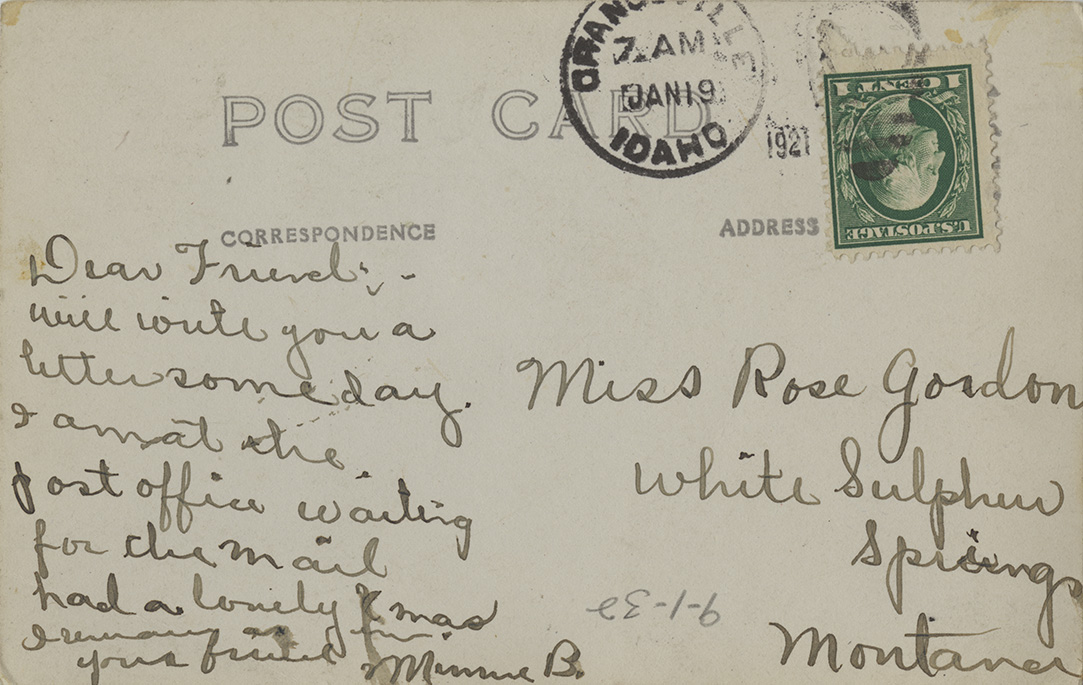 POST CARD
GRANGEVILLE
7 AM
JAN 19
1921
IDAHO
1 CENT 1
U.S. POSTAGE
CORRESPONDENCE
ADDRESS
Dear Friend; -
will write you a
letter some day.
I am at the
post office waiting
for the mail
had a lonely Xmas
I remain as
your friend
Minnie B.
Miss Rose Gordon
White Sulphur
Springs
Montana
9-1-32